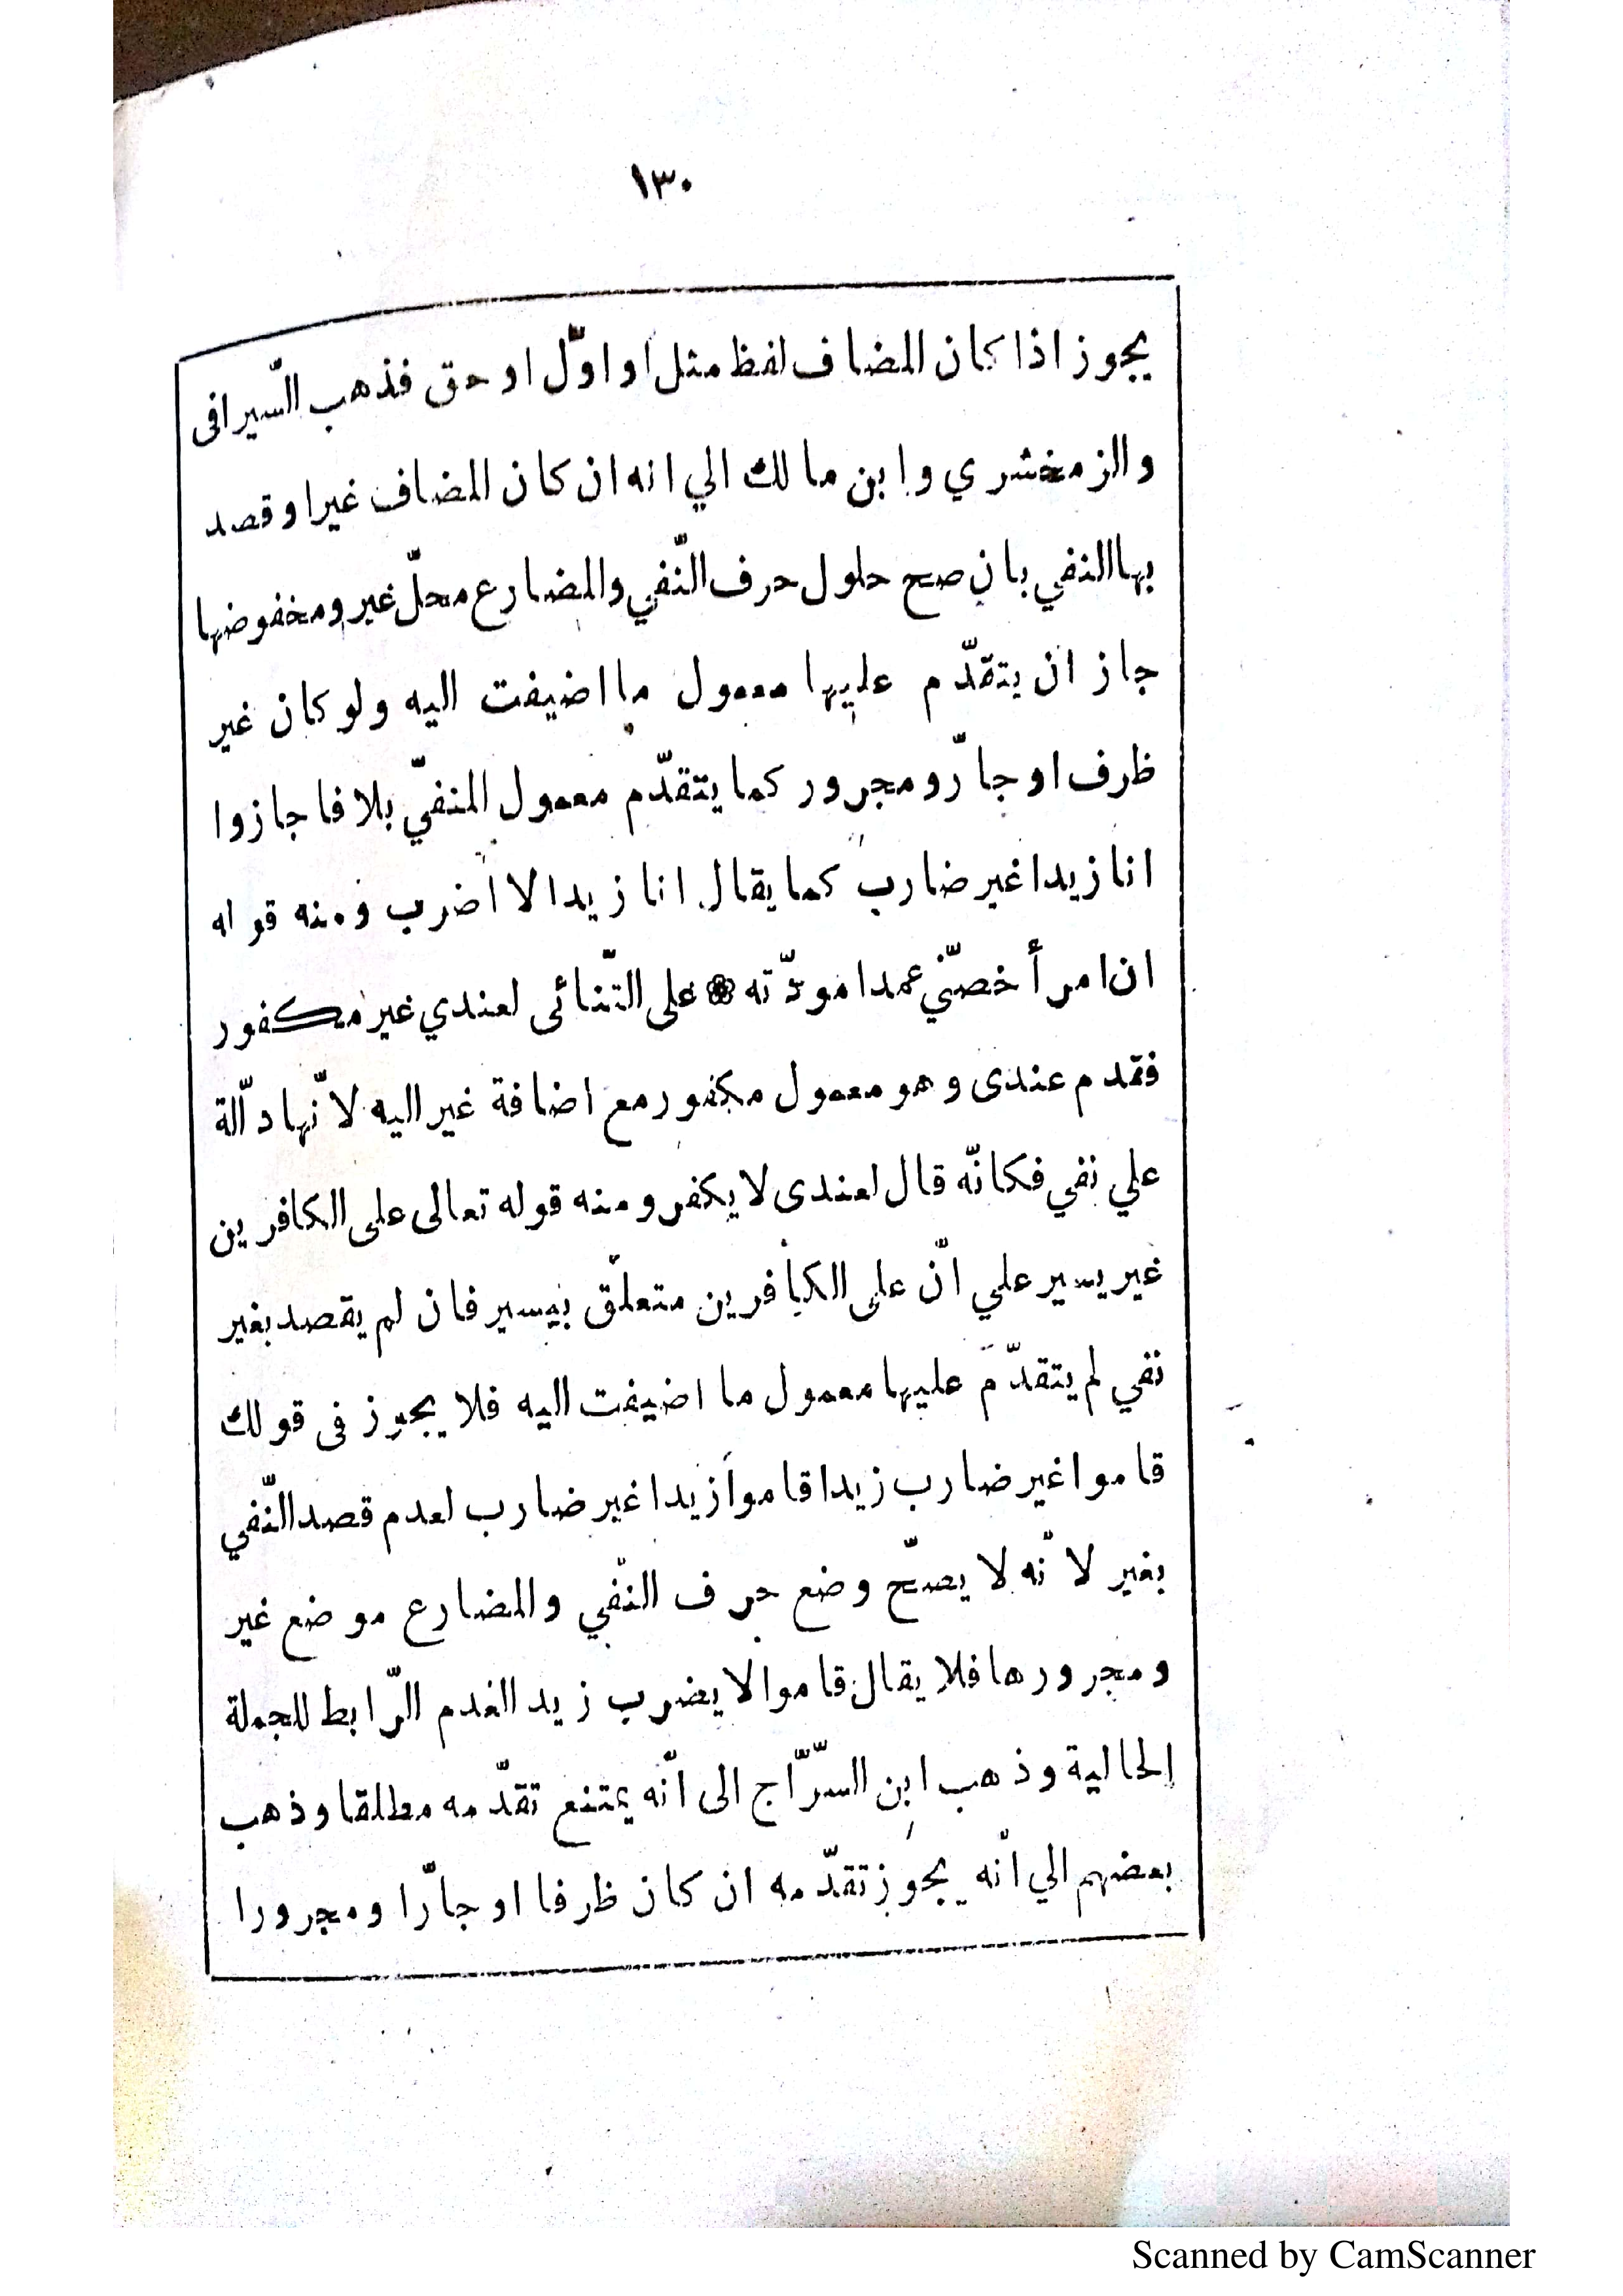 ١٣٠
يجوز اذا كان المضاف لفظ مثل او اوّل او حق فذهب السّيرافى
والزمخشري وابن مالك الي انه ان كان المضاف غيرا وقصد
بها النفي بان صح حلول حرف النّفي والمضارع محلّ غير ومخفوضها
جاز ان يتقدّم عليها معمول ما اضيفت اليه ولو كان غير
ظرف او جارّ ومجرور كما يتقدّم معمول المنفيّ بلا فاجازوا
انا زيدا غير ضارب كما يقال انا زيدا لا اضرب ومنه قوله
ان امرأ خصّني عمدا مودّته ❁ على التّنائى لعندي غير مكفور
فقدم عندى وهو معمول مكفور مع اضافة غير اليه لانّها دالّة
علي نفي فكانّه قال لعندى لا يكفر ومنه قوله تعالى على الكافرين
غير يسير علي انّ على الكافرين متعلّق بيسير فان لم يقصد بغير
نفي لم يتقدّم عليها معمول ما اضيفت اليه فلا يجوز فى قولك
قاموا غير ضارب زيدا قاموا زيدا غير ضارب لعدم قصد النّفي
بغير لانّه لا يصحّ وضع حرف النّفي والمضارع موضع غير
ومجرورها فلا يقال قاموا لا يضرب زيد العدم الرّابط للجملة
الحالية وذهب ابن السّرّاج الى انّه يمتنع تقدّمه مطلقا وذهب
بعضهم الي انّه يجوز تقدّمه ان كان ظرفا او جارّا ومجرورا
Scanned by CamScanner